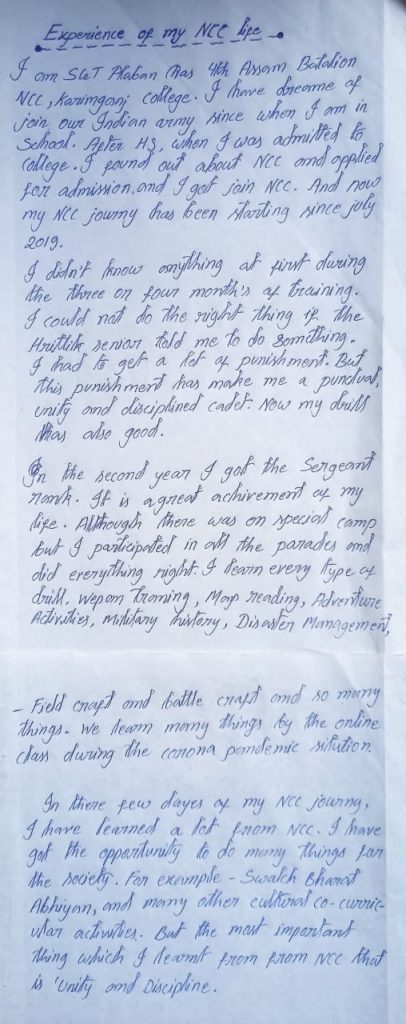 Experience of my NCC life.
I am SGT Alaban Das 4th Assam Batalion
NCC, Karimganj College. I have dreame of
join our Indian army since when I am in
School. After HS, when I was admitted to
college. I found out about NCC and applied
for admission, and I got join NCC. And now
my NCC journy has been starting since july
2019.
I didn't know anything at first during
the three or four month's of training.
I could not do the right thing if the
Hrittik senior told me to do something.
I had to get a lot of punishment. But
this punishment has make me a punctual,
unity and disciplined cadet. Now my drill
has also good.
In the second year I got the Sergeant
rank. It is a great achivement of my
life. Although there was on special camp
but I participated in all the parades and
did everything right. I learn every type of
drill, wepom traning, Map reading, Adventure
Activities, Military history, Disaster Management,
- Field craft and battle craft and so many
things. we learn many things by the online
class during the corona pandemic sitution
In there few dayes of my NCC journy,
I have learned a lot from NCC. I have
got the opportunity to do many things for
the society. For example - Swatch Bharat
Abhiyan, and many other cultural co-curric-
ular activities. But the most important
thing which I learnt from from NCC that
is 'Unity and Discipline.